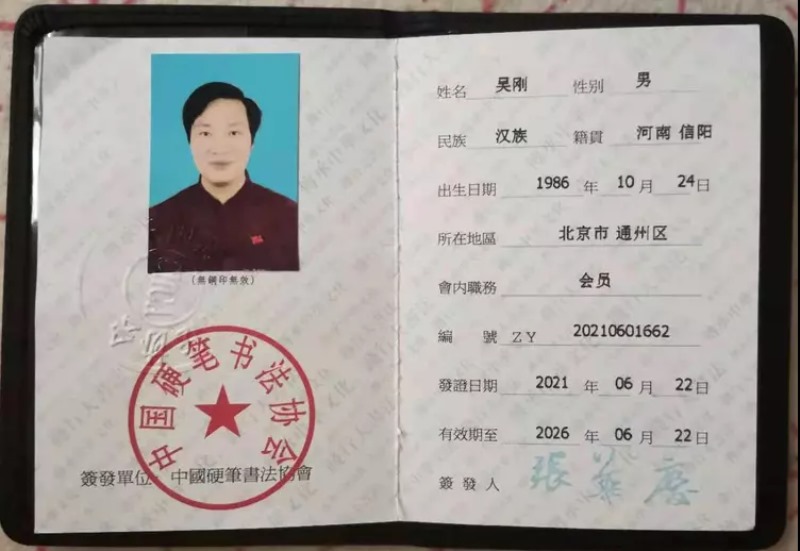 (無鋼印無效)
中国硬笔书法协会
簽發單位 中國硬筆書法協會
姓名 吴刚 性别 男
民族 汉族 籍貫 河南 信阳
出生日期 1986 年 10 月 24 日
所在地區 北京市 通州区
會内職務 会员
编 號 ZY 20210601662
發證日期 2021 年 06 月 22 日
有效期至 2026 年 06 月 22 日
簽發人 張華慶